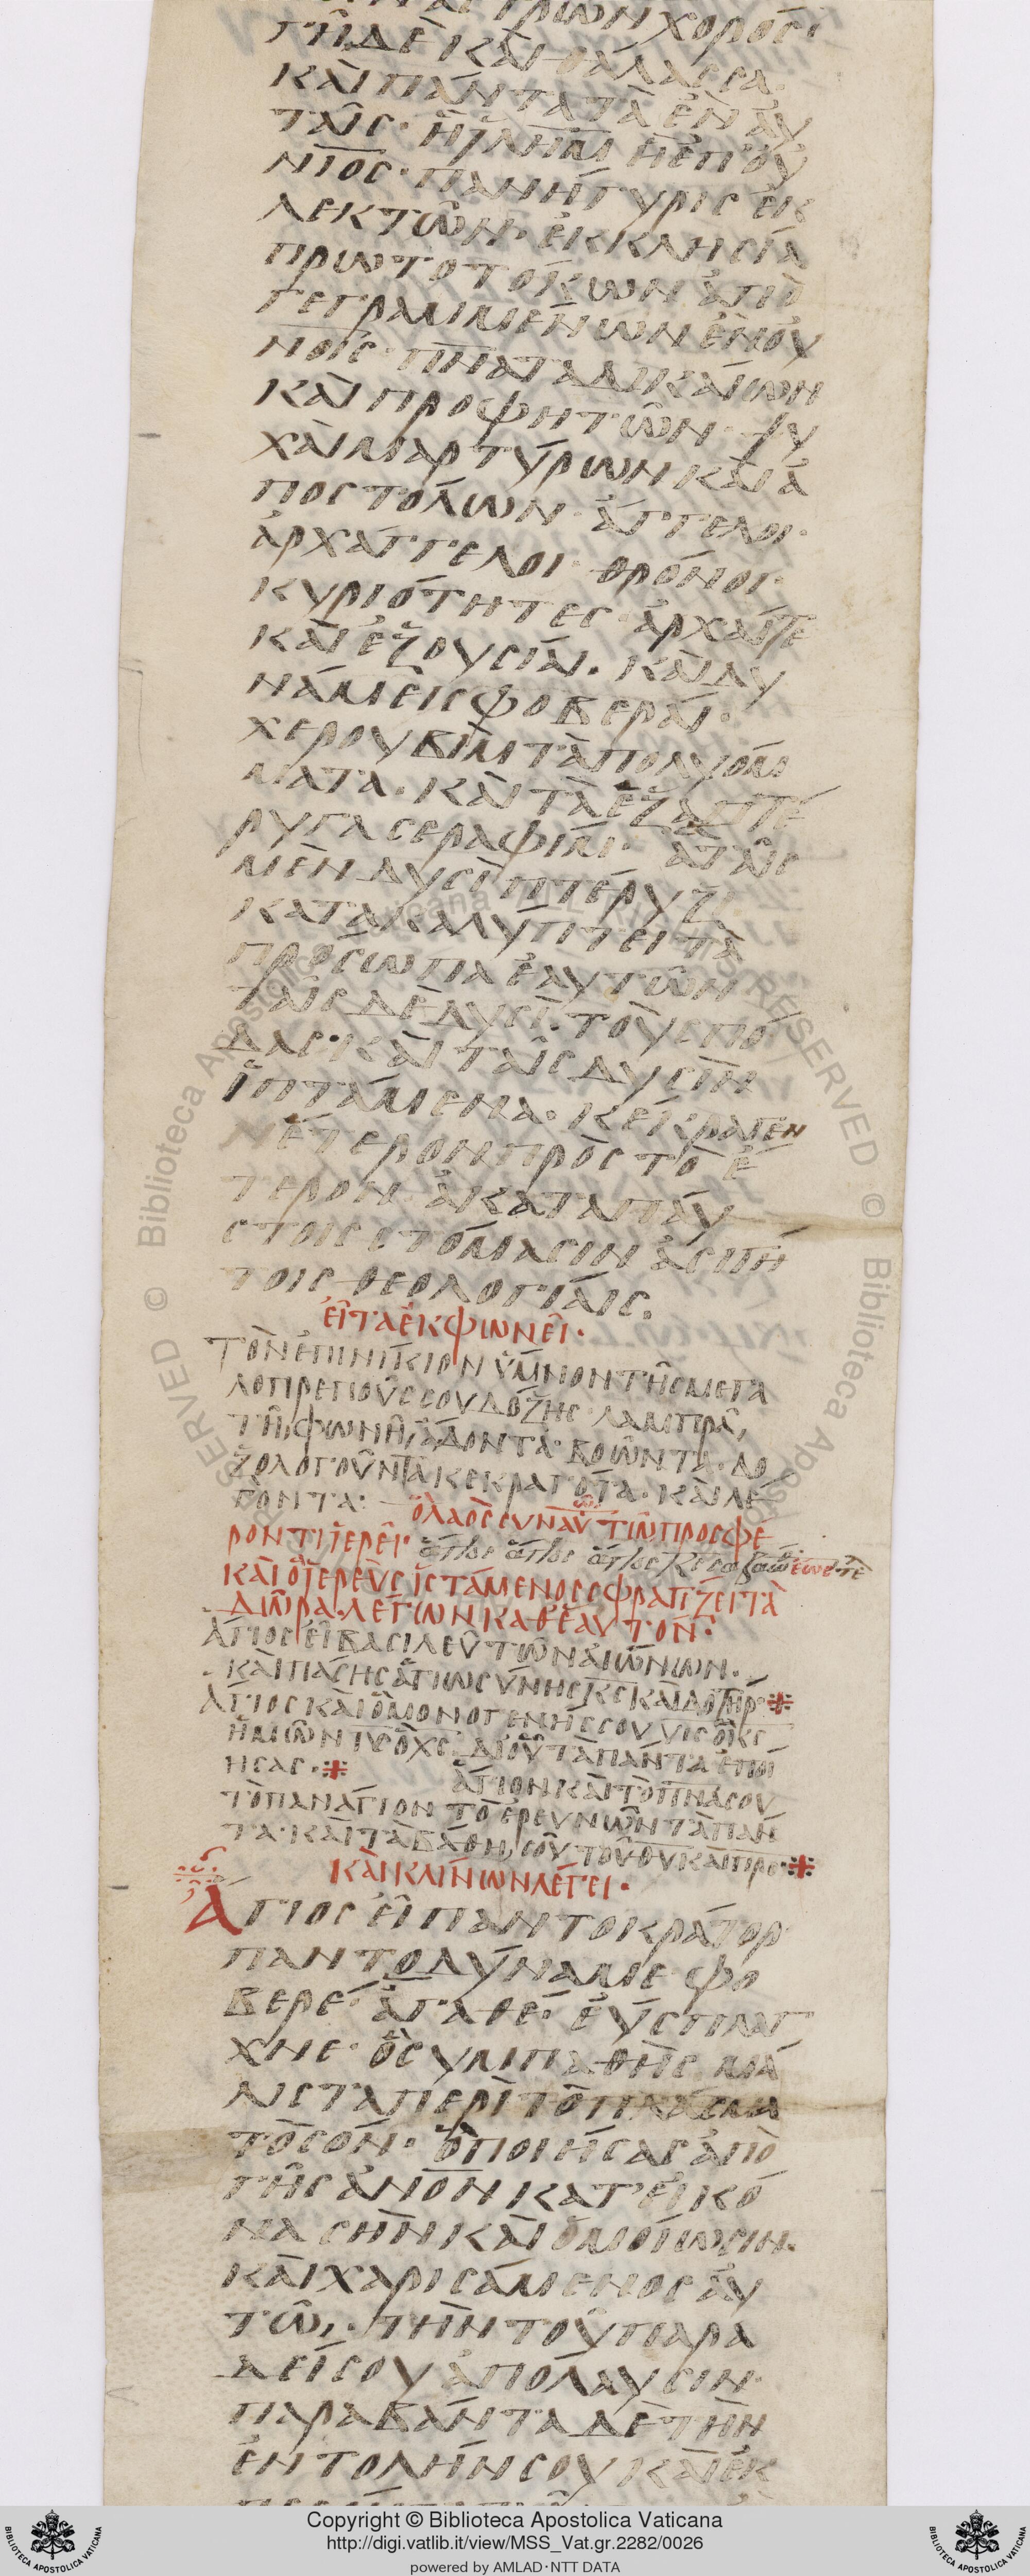 τρων χορός·
γῆ δὲ καὶ θάλασσα·
καὶ πάντα τὰ ἐν αὐ
ταῖς· ἡ ἱλημ ἡ ἐπου
νιος· πανήγυρις ἐκ
λεκτῶν· ἐκκλησία
πρωτοτόκων ἀπο
γεγραμμένων ἐν οὐ
νοις· πνατα δικαίων
καὶ προφητῶν· ψυ
χαὶ μαρτύρων καὶ ἀ
ποστόλων· ἄγγελοι·
ἀρχάγγελοι· θρόνοι·
κυριότητες· ἀρχαί τε
καὶ ἐξουσίαι· καὶ δυ
νάμεις φοβεραί·
χερουβὶμ τὰ πολυόμ
ματα· καὶ τὰ ἑξαπτέ
ρυγα σεραφίμ· ἃ ταῖς
μὲν δυσὶ πτέρυξι
κατακαλύπτει τὰ
πρόσωπα ἑαυτῶν
ταῖς δὲ δυσὶ· τοὺς πό
δας· καὶ ταῖς δυσὶν
ἱπτάμενα· κέκραγεν
ἕτερον πρὸς τὸ ἕ
τερον ἀκαταπαύ
στοις στόμασιν ἀσιγή
τοις θεολογίαις·
εἶτα ἐκφωνεῖ·
Τὸν ἐπινίκιον ὕμνον τῆς μεγα
λοπρεποῦς σου δόξης· λαμπρᾷ
τῇ φωνῇ, ᾄδοντα· βοῶντα· δο
ξολογοῦντα κεκραγότα· καὶ λέ
γοντα:
ὁ λαὸς σὺν αὐτῶ τῶ προσφέ
ροντι ἱερεῖ· ἅγιος ἅγιος ἅγιος κς σαβαώθ· ἕως τε
καὶ ὁ ἱερεὺς ἱστάμενος σφραγίζει τὰ
δῶρα· λέγων καθ' ἑαυτόν·
Ἅγιος εἶ βασιλεῦ τῶν αἰώνων·
καὶ πάσης ἁγιωσύνης κς καὶ δοτήρ·
Ἅγιος καὶ ὁ μονογενής σου υἱς ὁ κς
ἡμῶν ις ὁ χς· δι' οὗ τὰ πάντα ἐποί
ησας·
ἅγιον καὶ τὸ πνα σου
τὸ πανάγιον τὸ ἐρευνῶν τὰ πάν
τα· καὶ τὰ βάθη, σοῦ τοῦ θυ καὶ προ·
καὶ κλίνων λέγει·
Ἅγιος εἶ παντοκράτορ·
παντοδύναμε· φο
βερέ· ἀγαθέ· εὔσπλαγ
χνε· ὁ συμπαθὴς μά
λιστα περὶ τὸ πλάσμα
τὸ σόν· ὁ ποιήσας ἀπὸ
γῆς ἀνον κατ' εἰκό
να σὴν καὶ ὁμοίωσιν·
καὶ χαρισάμενος αὐ
τῷ, τὴν τοῦ παρα
δείσου ἀπόλαυσιν·
παραβάντα δὲ τὴν
ἐντολήν σου καὶ ἐκ
Copyright © Biblioteca Apostolica Vaticana
http://digi.vatlib.it/view/MSS_Vat.gr.2282/0026
powered by AMLAD・NTT DATA